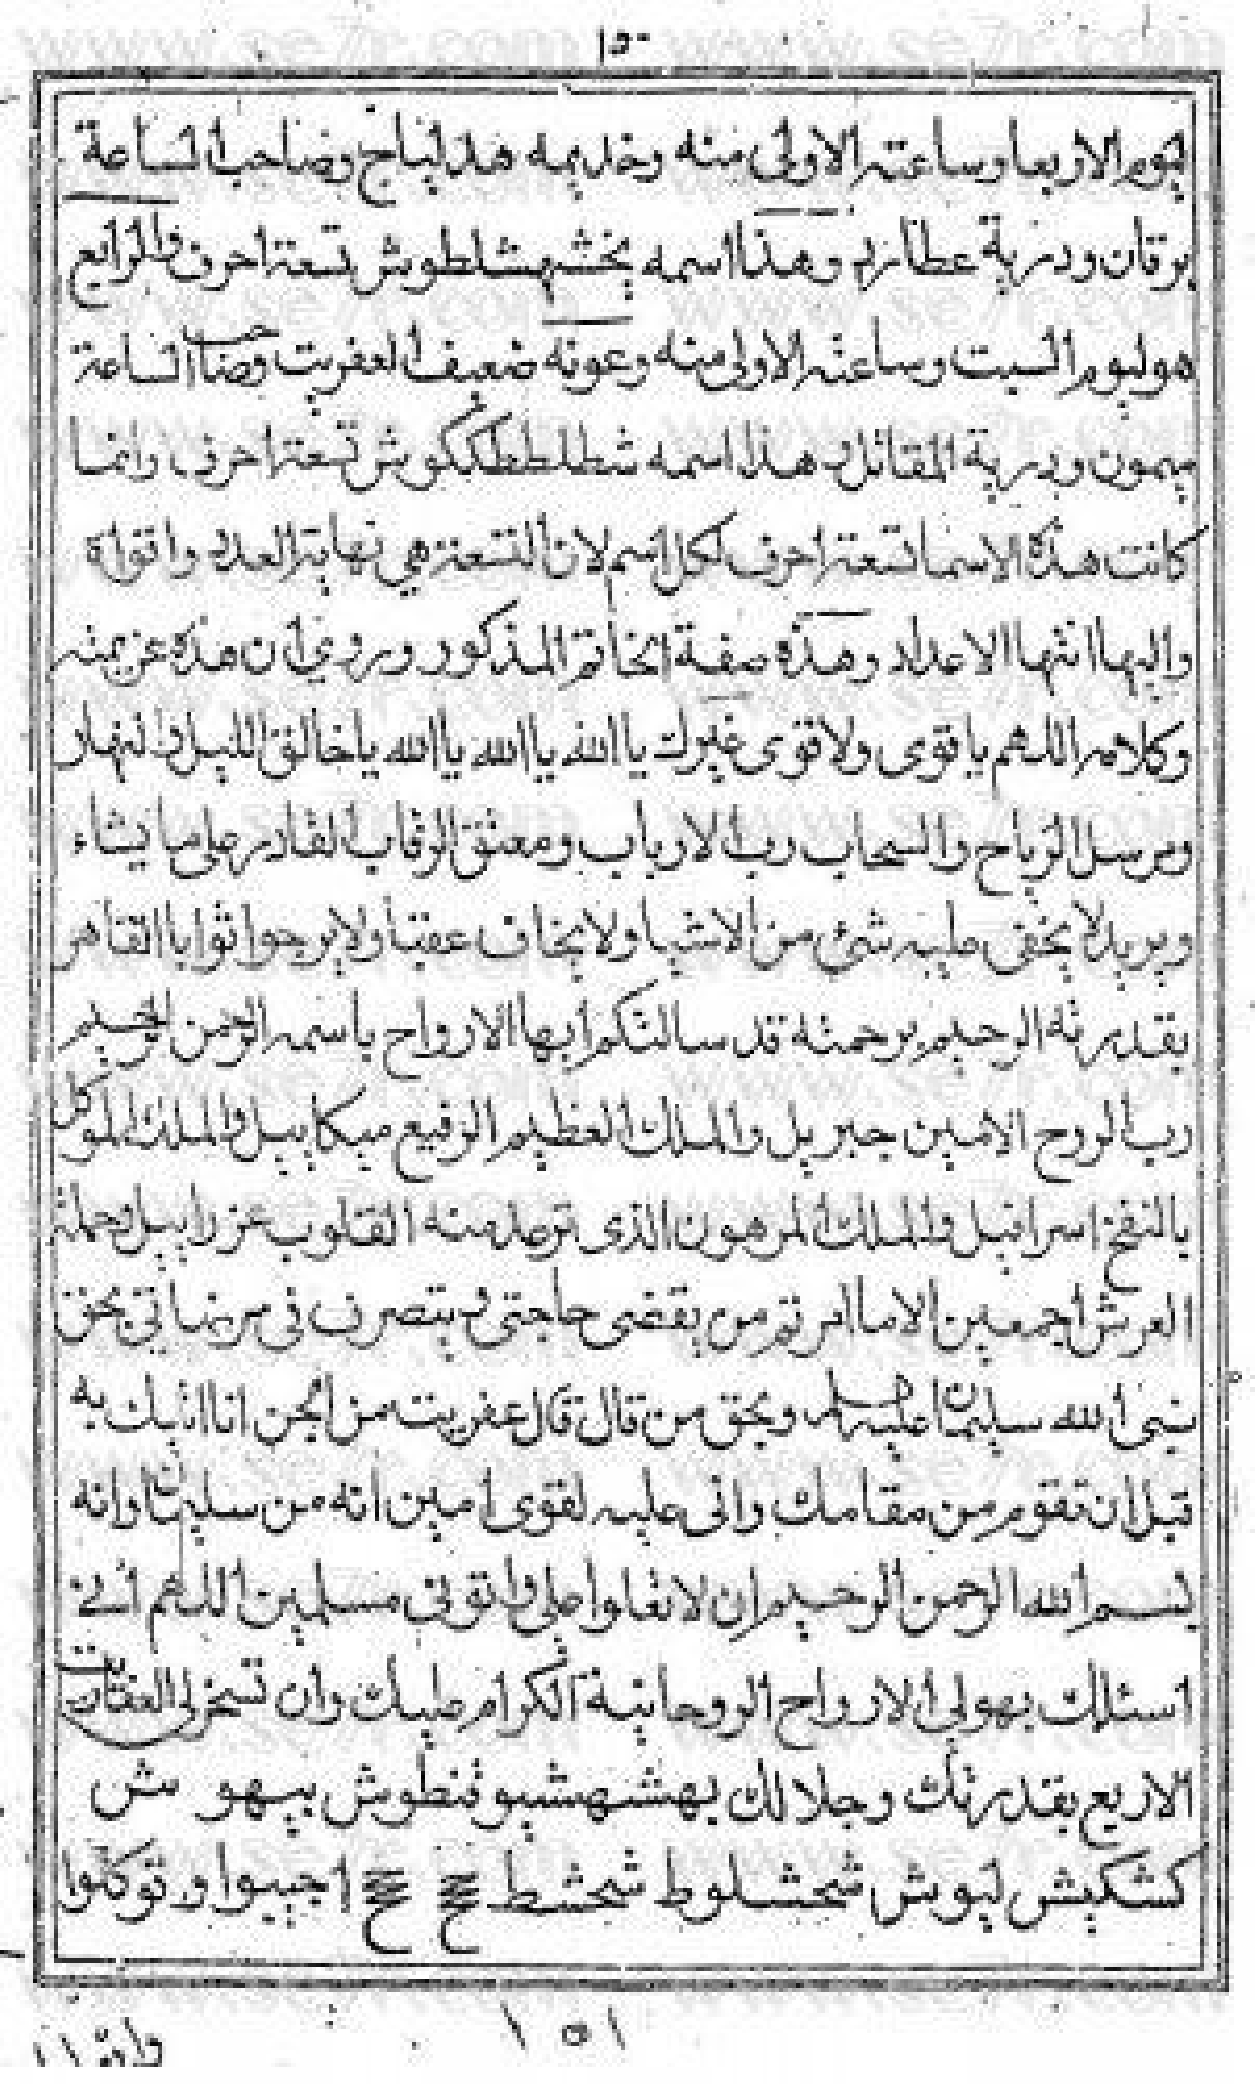 ١٥٠
ليوم الاربعا وساعته الاولى منه وخديمه هدلياج وصاحب الساعة
برقان ودرية عطارد وهذا اسمه بخشهشلطوش تسعة احرف والرابع
هو ليوم السبت وساعته الاولى منه وعونه ضعيف العفريت وصاحب الساعة
ميمون ودرية المقاتل وهذا اسمه شطلططككوش تسعة احرف وانما
كانت هذه الاسما تسعة احرف لكل اسم لان التسعة هي نهاية العدد واقواه
واليها انتها الاعداد وهذه صفة الخاتم المذكور وروي ان هذه عزيمته
وكلامه اللهم يا قوى ولا قوى غيرك يا الله يا الله يا الله يا خالق الليل والنهار
ومرسل الرياح والسحاب رب الارباب ومعتق الرقاب القادر على ما يشاء
ويريد لا يخفى عليه شئ من الاشيا ولا يخاف عقبا ولا يرجوا ثوابا القاهر
بقدرته الرحيم برحمته قد سالتكم ايها الارواح باسمه الرحمن الرحيم
رب الروح الامين جبريل والملك العظيم الرفيع ميكاييل والملك الموكل
بالنفخ اسرافيل والملك المرهون الذى ترعد منه القلوب عزراييل وحملة
العرش اجمعين الا ما امرتم من يقضى حاجتى ويتصرف فى مرضاتى بحق
نبى الله سليمان عليه السلم وبحق من قال قال عفريت من الجن انا اتيك به
قبل ان تقوم من مقامك وانى عليه لقوى امين انه من سليمان وانه
بسم الله الرحمن الرحيم ان لا تعلوا على واتونى مسلمين اللهم انى
اسئلك بهولى الارواح الروحانية الكرام عليك وان تسخر لى العفاريت
الاربع بقدرتك وجلالك بهشهشيوقنطوش بيهوش
كشكيش ليوش شحشلوط شحشط اجيبوا وتوكلوا
١٥١